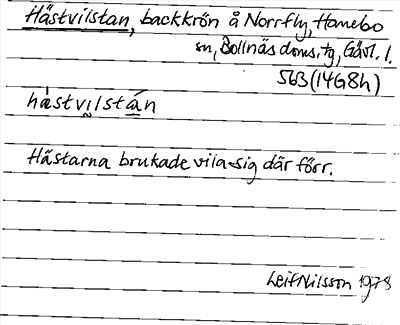 Hästvilstan, backkrön å Norrfly, Hanebo
sn, Bollnäs doms.tg, Gävl. l.
563 (14G8h)
hästvilstán
Hästarna brukade vila sig där förr.
Leif Nilsson 1978